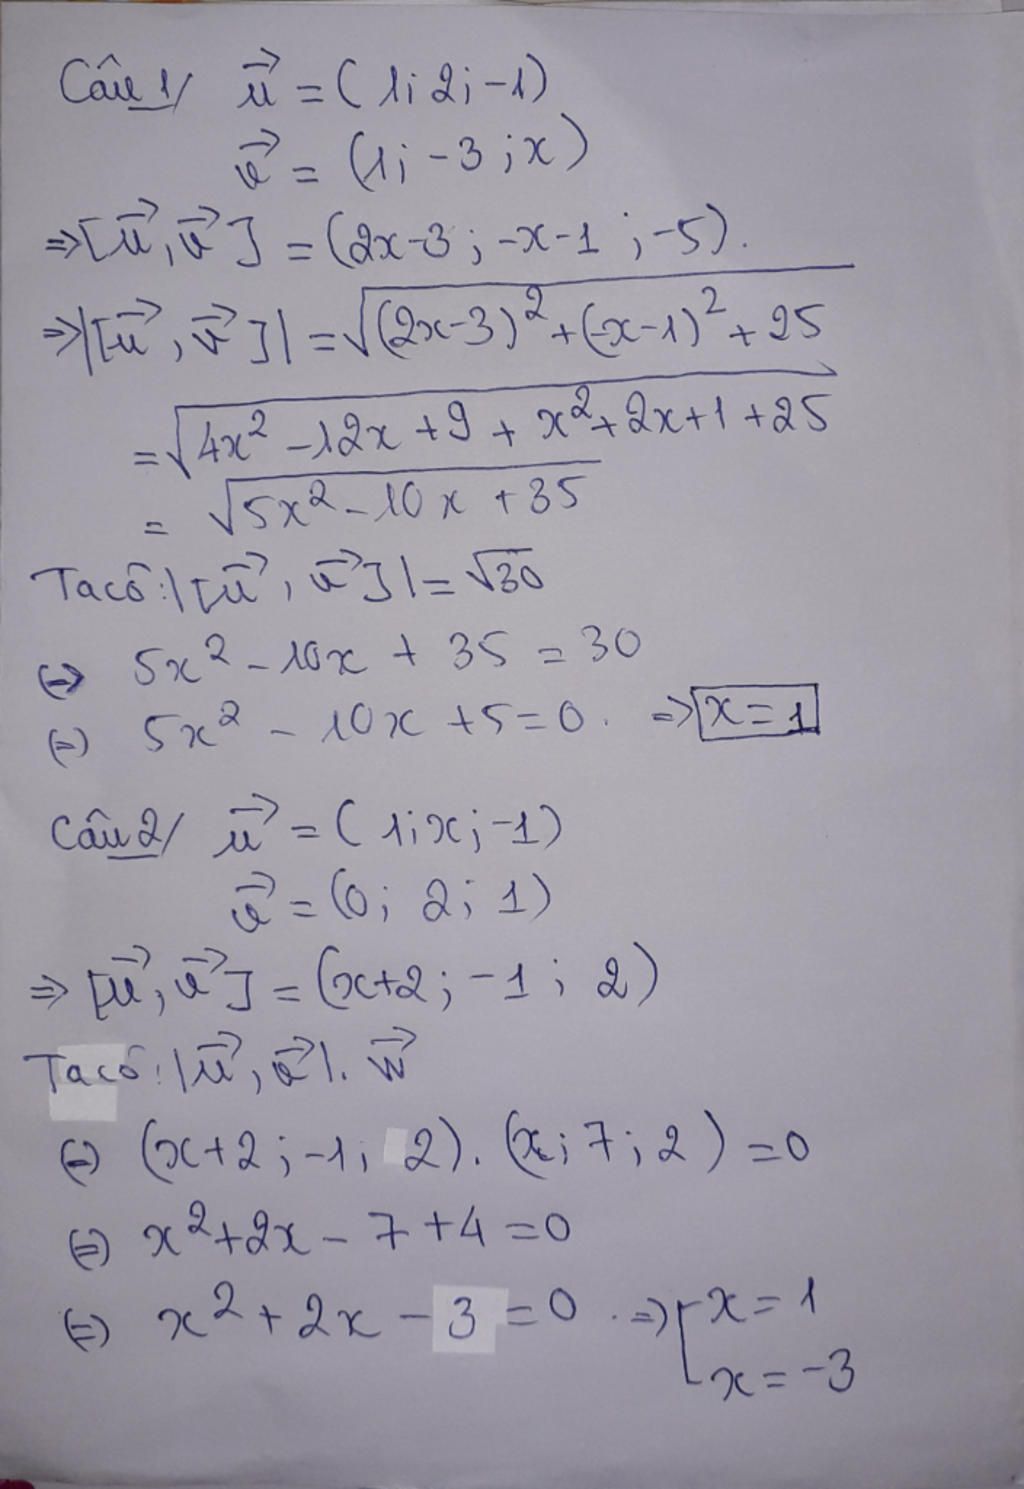 Câu 1/ u⃗ = (1; 2; -1)
v⃗ = (1; -3; x)
⇒ [u⃗, v⃗] = (2x-3; -x-1; -5).
⇒ |[u⃗, v⃗]| = √((2x-3)² + (-x-1)² + 25)
= √(4x² - 12x + 9 + x² + 2x + 1 + 25)
= √(5x² - 10x + 35)
Ta có: |[u⃗, v⃗]| = √30
⇔ 5x² - 10x + 35 = 30
⇔ 5x² - 10x + 5 = 0. ⇒ x = 1
Câu 2/ u⃗ = (1; x; -1)
v⃗ = (0; 2; 1)
⇒ [u⃗, v⃗] = (x+2; -1; 2)
Ta có: |u⃗, v⃗|. w⃗
⇔ (x+2; -1; 2). (x; 7; 2) = 0
⇔ x² + 2x - 7 + 4 = 0
⇔ x² + 2x - 3 = 0. ⇒ [x = 1
x = -3